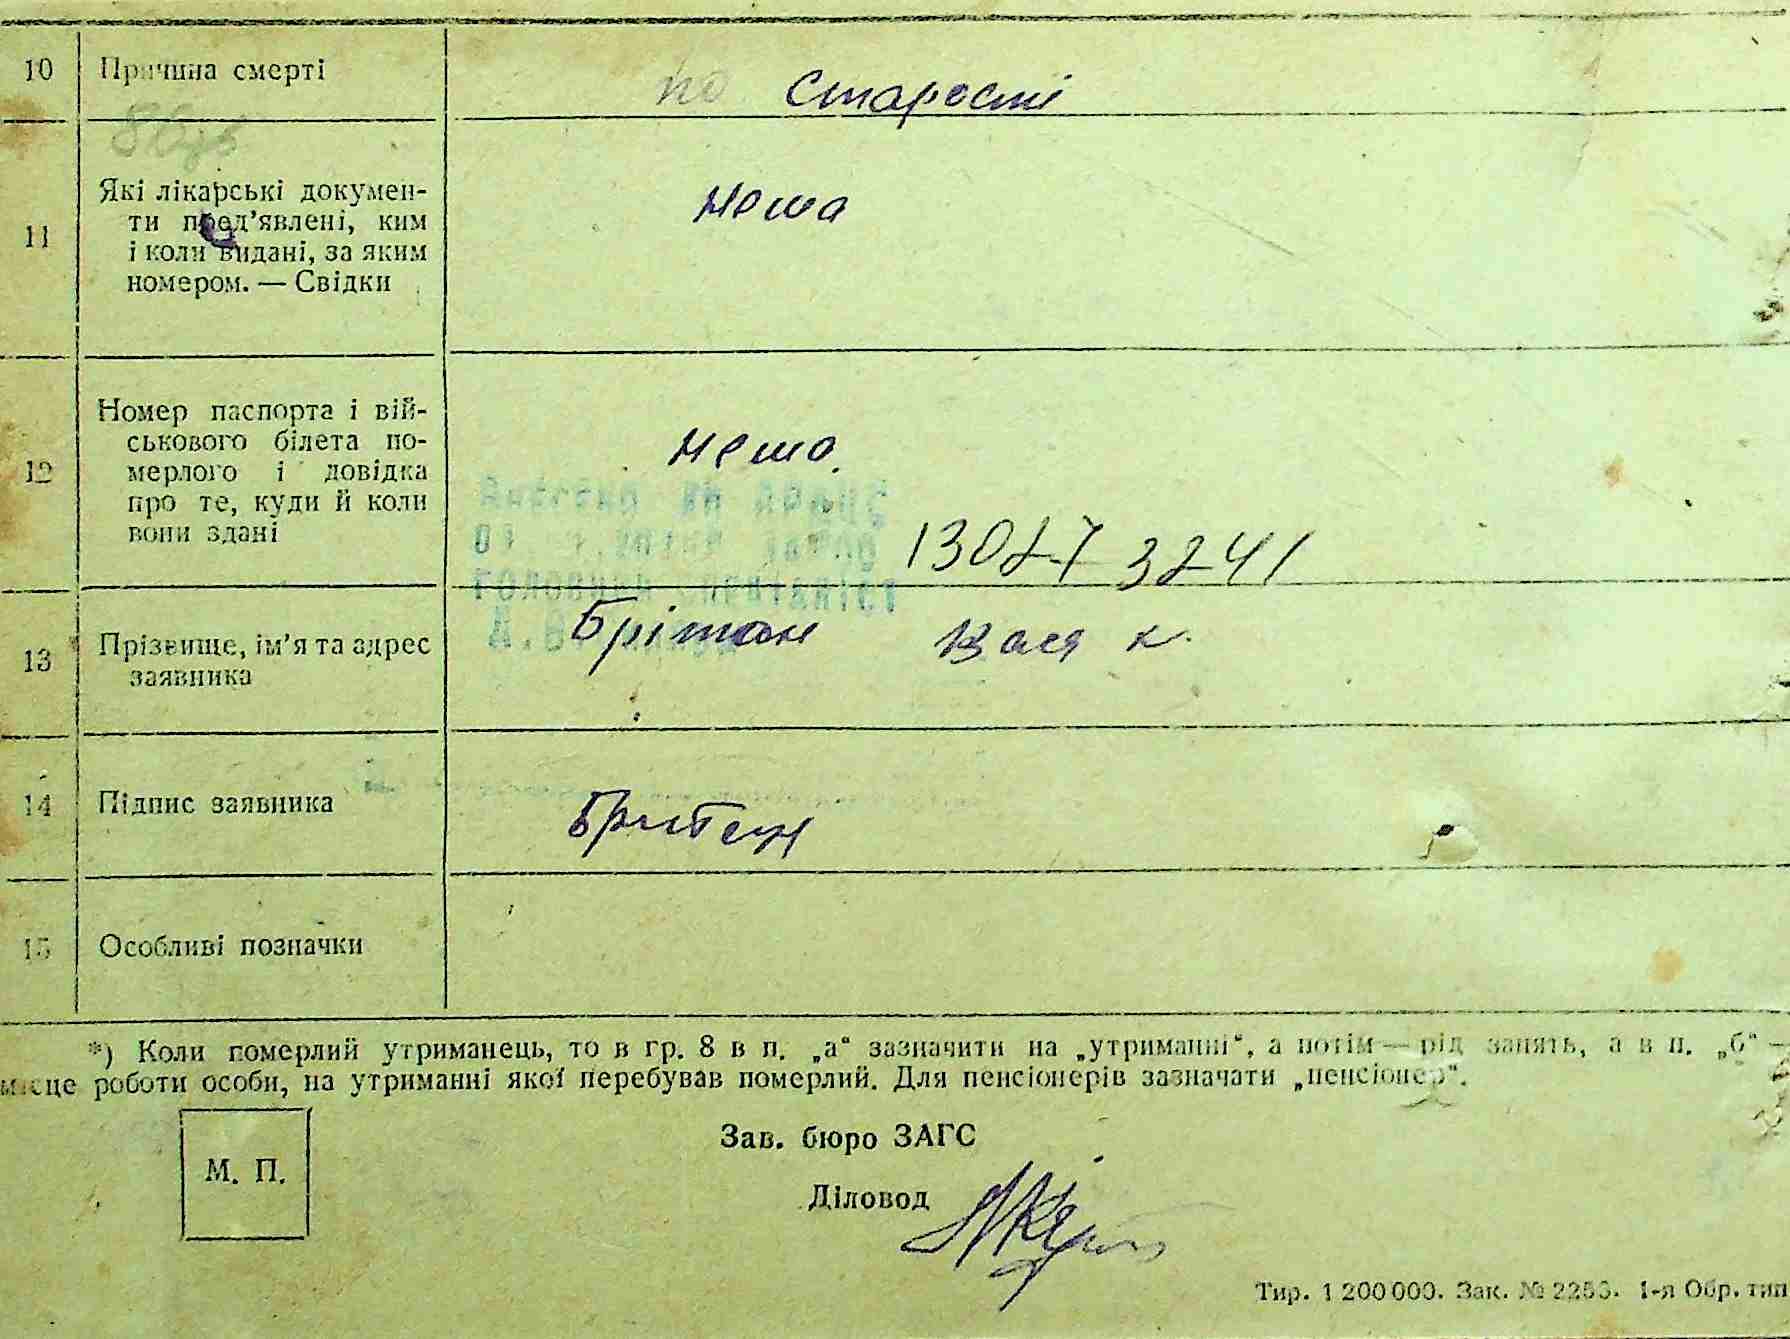 10 Причина смерті
по старості
11 Які лікарські докумен-
ти пред’явлені, ким
і коли видані, за яким
номером. — Свідки
нема
12 Номер паспорта і вій-
ськового білета по-
мерлого і довідка
про те, куди й коли
вони здані
нема
3241
13 Прізвище, ім’я та адрес
заявника
Брітан Вася к.
14 Підпис заявника
Британ
15 Особливі позначки
*) Коли померлий утриманець, то в гр. 8 в п. „а“ зазначити на „утриманні“, а потім — рід занять, а в п. „б“ —
місце роботи особи, на утриманні якої перебував померлий. Для пенсіонерів зазначати „пенсіонер“.
М. П.
Зав. бюро ЗАГС
Діловод
Тир. 1 200 000. Зак. № 2253. 1-я Обр. тип